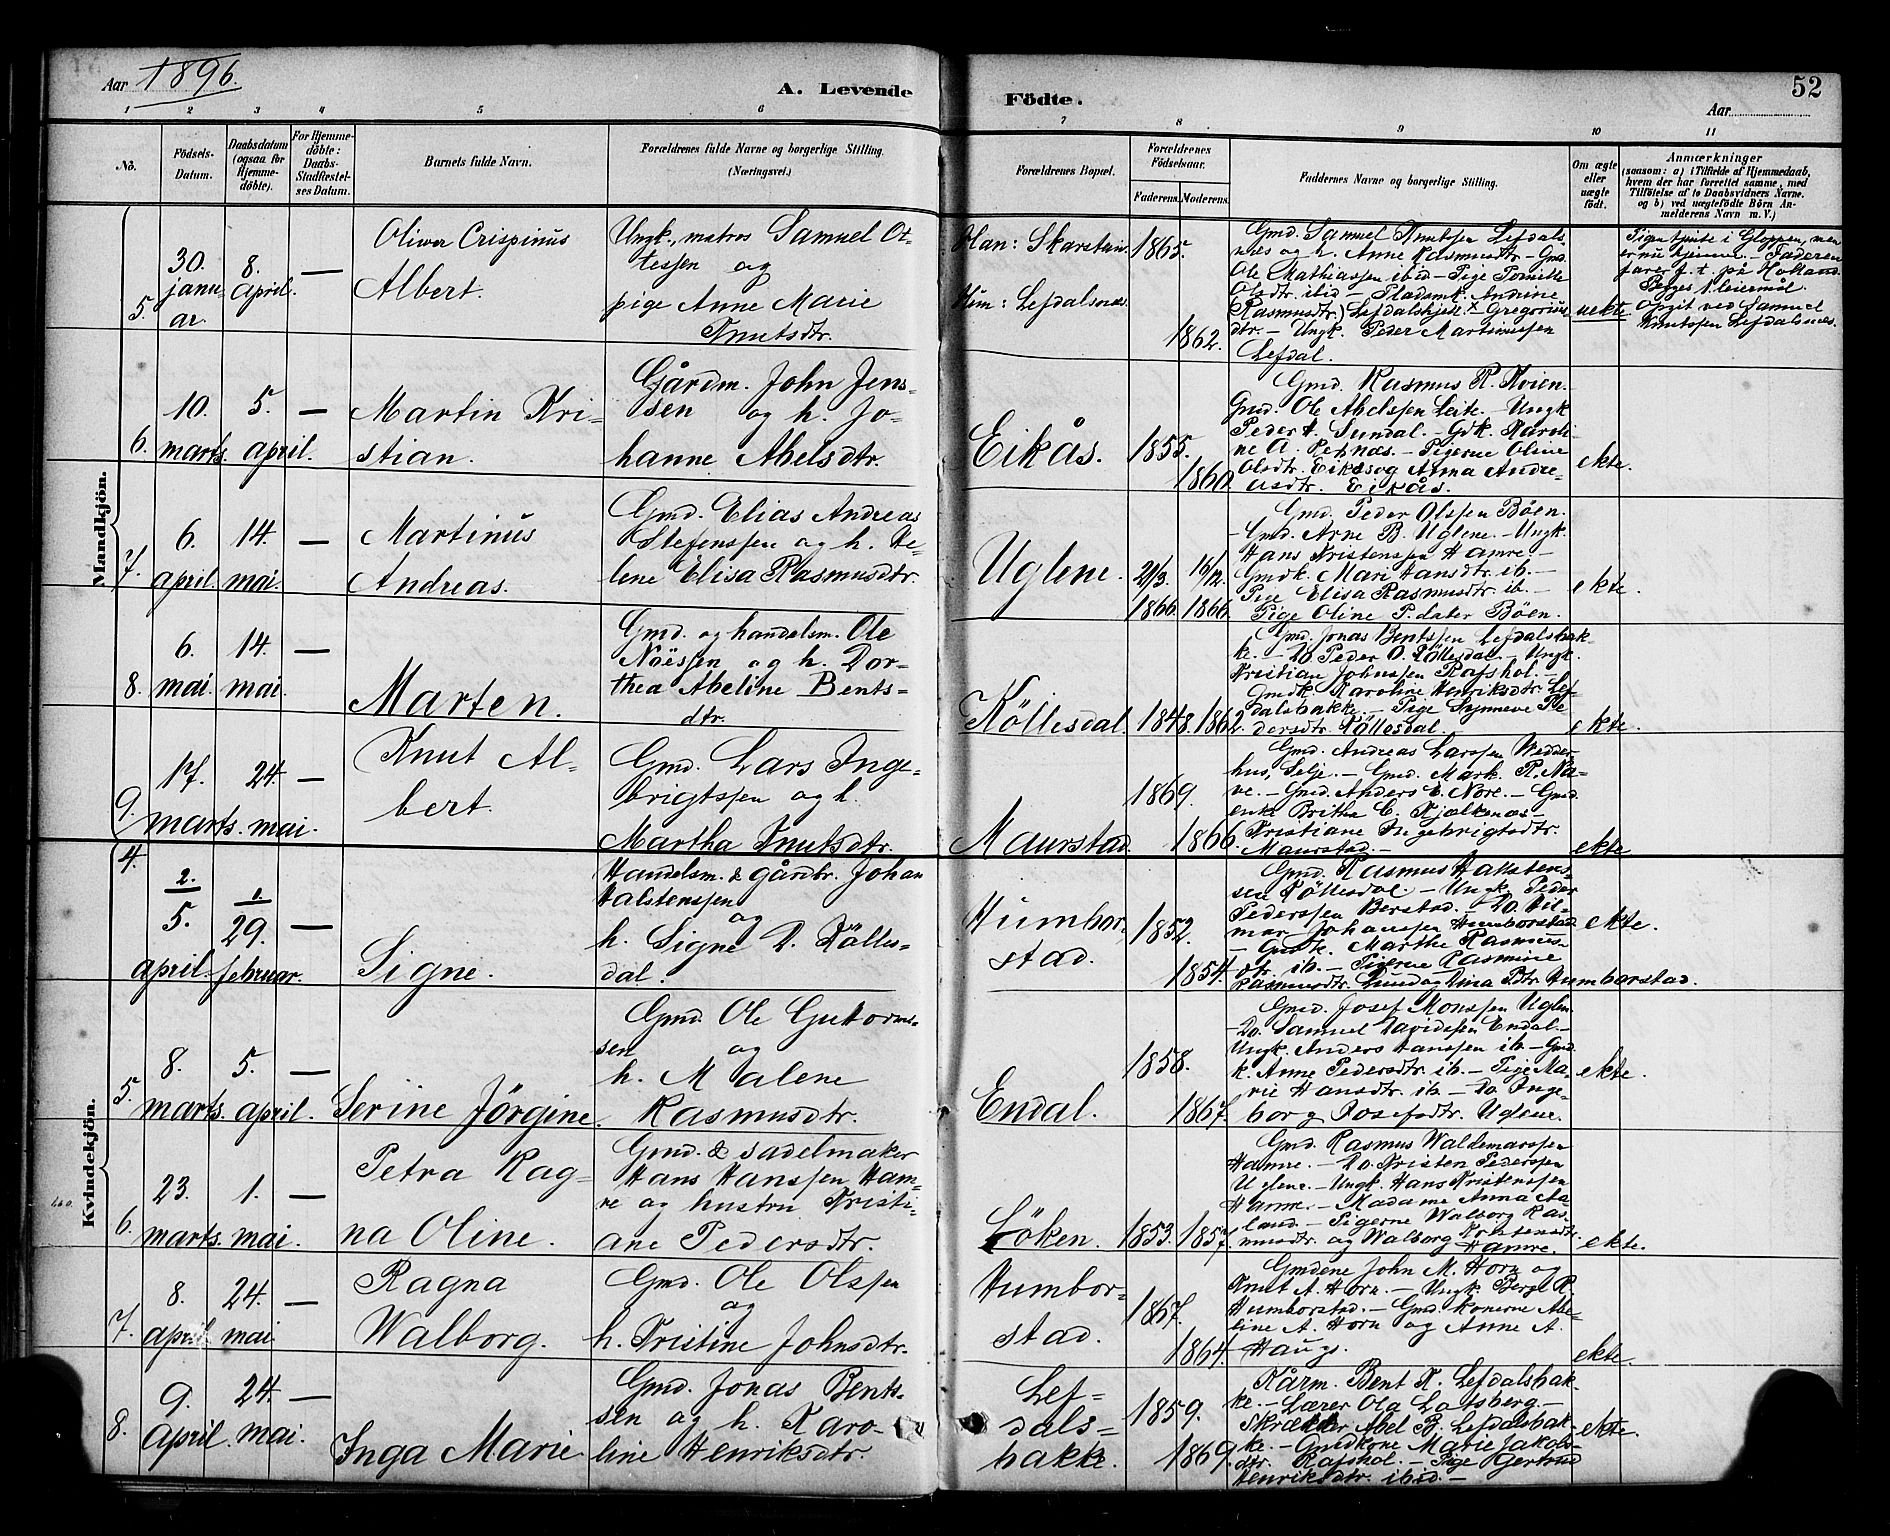 Aar 1896.
A. Levende
Födte.
52
Aar
1 2 3 4 5 6 7 8 9 10 11
No.
Födsels-
Datum.
Daabsdatum
(ogsaa for
Hjemme-
döbte).
For Hjemme-
döbte:
Daabs-
Stadfæstel-
ses Datum.
Barnets fulde Navn.
Forældrenes fulde Navne og borgerlige Stilling.
(Næringsvei.)
Forældrenes Bopæl.
Forældrenes
Födselsaar.
Faderens. Moderens.
Faddernes Navne og borgerlige Stilling.
Om ægte
eller
uægte
födt.
Anmærkninger
(saasom: a) i Tilfælde af Hjemmedaab,
hvem der har forrettet samme, med
Tilföielse af to Daabsvidners Navne.
og b) ved uægtefödte Börn An-
melderens Navn m. V.)
Mandkjön.
5.
30.
janu-
ar.
8.
April.
—
Oliver Crispinus
Albert.
Ungk., matros Samuel Ot-
tessen og
pige Anne Marie
Knutsdtr.
Han: Skarstein.
Hun: Lefdalsnæs.
1865.
1862.
Gmd. Samuel Knutsen Lefdals-
næs og h. Anne Rasmusdtr. - Gmd.
Ole Mathiassen ibid - Pige Pernille
Olsdtr. ibid - Pladsmk. Andrine
Rasmusdtr. Lefdalshjell. Gregorius
dtr. - Ungk. Peder Martinussen
Lefdal.
uekte.
Pigen tjente i Gloppen, men
er nu hjemme. - Faderen
farer f. t. på Holland.
Begges 1. leiermål.
Opgit ved Samuel
Knutssen Lefdalsnæs.
6.
10.
marts.
5.
april.
—
Martin Kri-
stian.
Gårdm. John Jens-
sen og h. Jo-
hanne Abelsdtr.
Eikås.
1855.
1860.
Gmd. Rasmus R. Kvien.
Gmd. Ole Abelssen Leite. - Ungk
Peder A. Sundal. - Gdk. Karoli-
ne A. Pernæs. - Pigerne Oline
Olsdtr. Eikås og Anna Andre-
asdtr. Eikås.
ekte.
7.
6.
april.
14.
mai.
—
Martinus
Andreas.
Gmd. Elias Andreas
Stefenssen og h. He-
lene Elisa Rasmusdtr.
Uglene.
21/3.
1866.
16/12.
1866.
Gmd. Peder Olssen Böen.
- Gmd. Arne B. Uglene. - Ungk.
Hans Kristenssen Hamre. -
Gmdk. Mari Hansdtr. ib. -
Pige Elisa Rasmusdtr. ib. -
Pige Oline P.dater Böen.
ekte.
8.
6.
mai.
14.
mai.
—
Marten.
Gmd. og handelsm. Ole
Noëssen og h. Dor-
thea Abeline Bents-
dtr.
Köllesdal.
1848.
1862.
Gmd. Jonas Bentssen Lefdalsbak-
ke. - Do Peder O. Röllesdal - Ungk.
Kristian Johnssen Rafshol. -
Gmdk. Karoline Henriksdtr. Lef-
dalsbakke. - Pige Synneve Pe-
dersdtr. Köllesdal.
ekte.
9.
17.
marts.
24.
mai.
—
Knut Al-
bert.
Gmd. Lars Inge-
brigtssen og h.
Martha Knutsdtr.
Maurstad.
1869.
1866.
Gmd. Andreas Larssen Wedder-
hus, Selje. - Gmd. Mark. R. Na-
ve. - Gmd. Anders E. Nore. - Gmd.
enke Brithe C. Kjølkenæs -
Kristiane Ingebrigtsdtr.
Maurstad. -
ekte
Kvindekjön.
4.
2.
5.
april.
1.
29.
februar.
—
Signe.
Handelsm. & gårdbr. Johan
Halstenssen
og
h. Signe D. Rölles-
dal.
Humbor-
stad.
1852.
1854.
Gmd. Rasmus Halstens-
sen Röllesdal - Ungk. Peder
Pederssen Berstad. - Do Hil-
mar Johanssen Humborstad
- Gmdk. Marthe Rasmus-
dtr. ib. - Pigerne Rasmine
Rasmusdtr. Lund og Dina Pdtr. Humborstad.
ekte.
5.
8.
marts.
5.
april.
—
Serine Jörgine.
Gmd. Ole Guttorms-
sen og
h. Malene
Rasmusdtr.
Endal.
1858.
1867.
Gmd. Josef Monssen Uglen
- Do. Samuel Davidssen Endal. -
Ungk. Anders Hanssen ib. - Gmd
k. Anne Pedersdtr. ib. - Pige Ma-
rie Hansdtr. ib. - Do. Inge-
borg Josefsdtr. Uglene.
ekte.
6.
23.
marts.
1.
mai.
—
Petra Rag-
na Oline.
Gmd. & sadelmaker
Hans Hanssen Ham-
re og hustru Kristi-
ane Pedersdtr.
Löken.
1853.
1857.
Gmd. Rasmus Waldemarssen
Hamre. - Do. Kristen Pederssen
Uglene. - Ungk. Hans Kristenssen
Hamre. - Madame Anna Aa-
land. - Pigerne Walborg Ras-
musdtr. og Walborg Kristensdtr
Hamre.
ekte.
7.
8.
april.
24.
mai
—
Ragna
Walborg.
Gmd. Ole Olssen
og
h. Kristine Johnsdtr.
Humbor-
stad.
1867.
1864.
Gmdene John M. Horn og
Knut A. Horn. - Ungk. Berge R.
Humborstad. - Gmd.konerne Abe-
line A. Horn og Anne A.
Haugs.
ekte.
8.
9.
April.
24.
mai.
—
Inga Marie
Gmd. Jonas Bents-
sen og h. Karo-
line Henriksdtr.
Lef-
dals-
bakke.
1859.
1869.
Kårm. Bent K. Lefdalsbak-
ke. - Lærer Ola Lotsberg. -
Skrædder Abel B. Lefdalsbak-
ke. - Gmdkone Marie Jakobs-
dtr. Rafshol. - Pige Gjertrud
Henriksdtr. ibid. -
ekte.